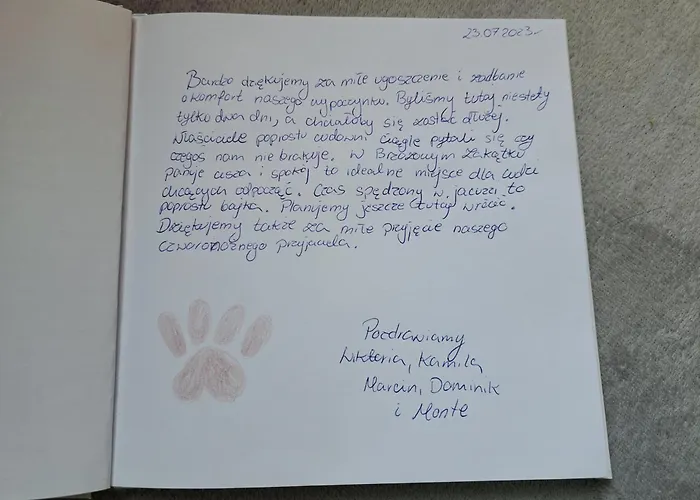 23.07.2023r.
Bardzo dziękujemy za miłe ugoszczenie i zadbanie
o komfort naszego wypoczynku. Byliśmy tutaj niestety
tylko dwa dni, a chciałoby się zostać dłużej.
Właściciele poprostu cudowni ciągle pytali się czy
czegoś nam nie brakuje. W Brzozowym Zakątku
panuje cisza i spokój to idealne miejsce dla ludzi
chcących odpocząć. Czas spędzony w jacuzzi to
poprostu bajka. Planujemy jeszcze tutaj wrócić.
Dziękujemy także za miłe przyjęcie naszego
czworonożnego przyjaciela.
Pozdrawiamy
Wiktoria, Kamila,
Marcin, Dominik
i Monte